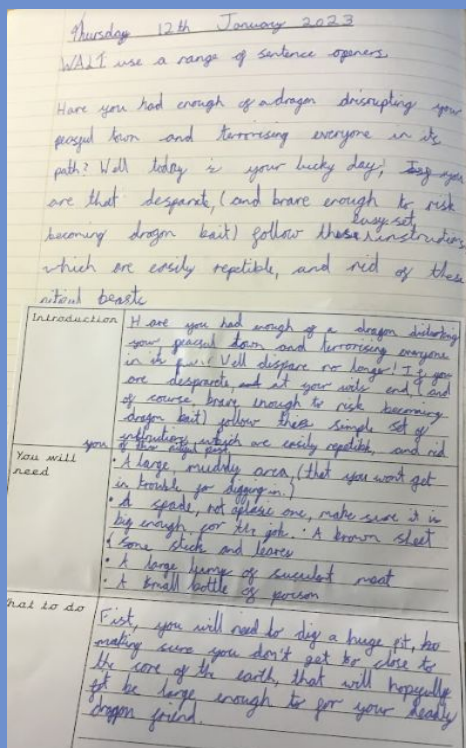 Thursday 12th January 2023
WALT use a range of sentence openers
Have you had enough of a dragon disrupting your
peaceful town and terrorising everyone in its
path? Well today is your lucky day, you
are that desparate, (and brave enough to risk
easy set
becoming dragon bait) follow these instructions
which are easily repetible, and rid of these
beasts
Introduction
Have you had enough of a dragon disturbing
your peaceful town and terrorising everyone
in its Well dispare no longer! If you
are desparate, and at your wits end, (and
of course, brave enough to risk becoming
dragon bait) follow these simple set of
instructions which are easily repetible, and rid
you of this
You will
need
• A large, muddy area, (that you wont get
in trouble for digging in.)
• A spade, not a plasic one, make sure it is
big enough for the job. • A brown sheet
• some stick and leaves
• A large lump of suculent meat
• A small bottle of poison
hat to do
Fist, you will need to dig a huge pit,
making sure you don't get to close to
the core of the earth, that will hopyfully
be large enough to for your deadly
dragon friend.